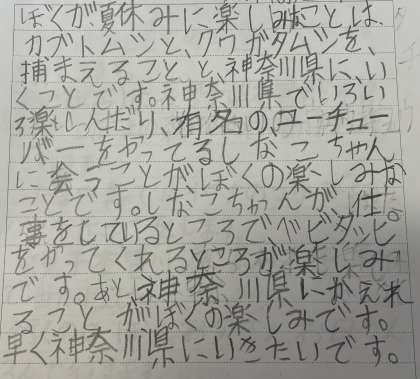 ぼくが夏休みに楽しみことは、
カブトムシと、クワガタムシを、
捕まえることと、神奈川県に、い
くことです。神奈川県でいろい
ろ楽しんだり、有名の、ユーチュー
バーをやってるしなこちゃん
に会うことがぼくの楽しみな
ことです。しなこちゃんが仕
事をしているところで、ベビタッピ
をかってくれるところが楽しみ
です。あと、神奈川県にかえれ
ることがぼくの楽しみです。
早く神奈川県にいきたいです。